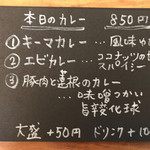 本日のカレー 850円
① キーマカレー … 風味や
② エビカレー … ココナッツの
スパイシー
③ 豚肉と蓮根のカレー
… 味噌つかい
旨辛変化球
大盛 +50円 ドリンク +10